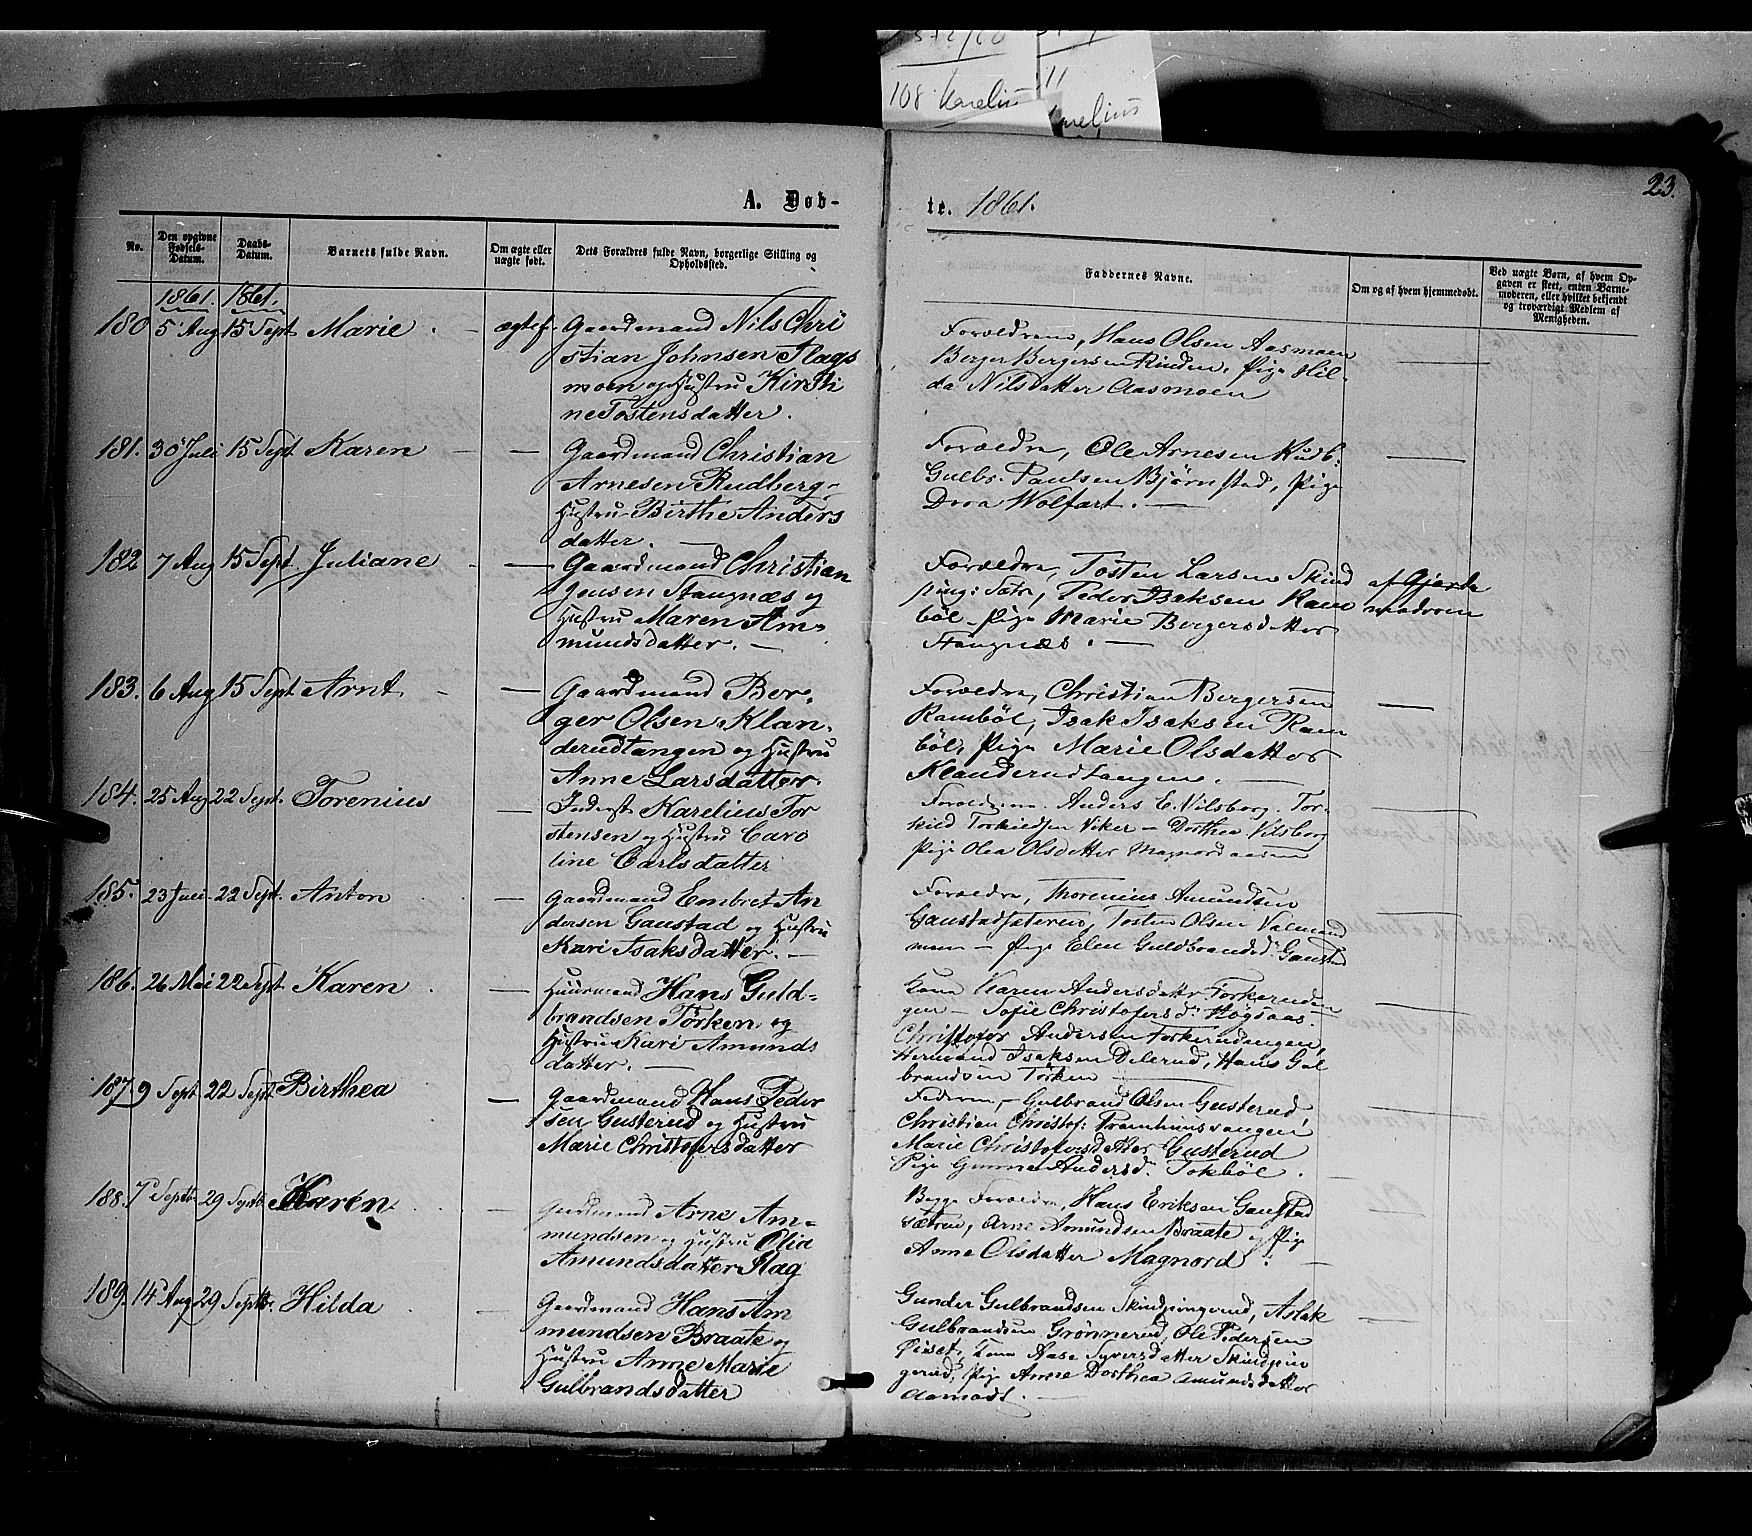 108 Karelius
11
A. Døb-
te. 1861.
23.
No.
Den opgivne Fødsels-Datum.
Daabs-Datum.
Barnets fulde Navn.
Om ægte eller uægte født.
Dets Forældres fulde Navn, borgerlige Stilling og Opholdssted.
Faddernes Navne.
Om og af hvem hjemmedøbt.
Ved uægte Børn, af hvem Opgaven er skeet, enten Barnemoderen, eller hvilket bekjendt og troværdigt Medlem af Menigheden.
1861. 1861.
180 5 Aug 15 Sept Marie - ægtef.
Gaardmand Nils Chri
stian Johnsen Slags
moen og Hustru Kirsti
ne Tostensdatter.
Forældrene, Hans Olsen Aasmoen
Berger Bergersen Rinden, Pige Hil-
da Nilsdatter Aasmoen
181. 30 Juli 15 Sept. Karen - -
Gaardmand Christian
Arnesen Rudberg,
Hustru Birthe Anders
datter. -
Forældre, Ole Arnesen Rudb:
Gulbr. Paulsen Bjørnstad, Pige
Dora Wolfart. -
182 7 Aug 15 Sept. Juliane - -
Gaardmand Christian
Jensen Stangnæs og
Hustru Maren Am-
mundsdatter. -
Forældre, Tosten Larsen Skind
ping: Sætr, Peder Isaksen Ram
böl - Pige Marie Bergersdatter
Stangnæs. -
af Gjorde
modren
183. 6 Aug 15 Sept Arnt - -
Gaardmand Ber-
ger Olsen Klan-
derudtangen og Hustru
Anne Larsdatter.
Forældre, Christian Bergersen
Ramböl, Isak Isaksen Ram
böl, Pige Marie Olsdatter
Klanderudtangen. -
184. 25 Aug 22 Sept. Torenius -
Inderst Karelius Tor
stensen og Hustru Caro
line Carlsdatter
Forældrene. Anders E. Vilsborg. Tor-
kild Torkildsen Viker - Dorthea Vilsborg
Pige Olea Olsdatter Magnordaasen
185. 23 Juli 22 Sept. Anton -
Gaardmand Embret An
dersen Gaustad og Hustru
Kari Isaksdatter. -
Forældre, Thorenius Amundsen
Gaustadsæteren, Tosten Olsen Valmand
moen - Pige Elen Guldbrandsd: Gaustad
186. 26 Mai 22 Sept Karen -
Huusmand Hans Guld-
brandsen Törken og
Hustru Kari Amunds
datter. -
Kone Karen Andersdattr Torkeruden
gen - Sofie Christofersd: Högsaas.
Christofer Andersen Torkerudengen,
Hermand Isaksen Delerud, Hans Gul
brandsen Törken -
187 9 Sept 22 Sept. Birthea -
Gaardmand Hans Peder
sen Gusterud og Hustru
Marie Christofersdatter
Federen, - Gulbrand Olsen Gusterud
Christian Christof: Pramhuusvangen
Marie Christofersdatter Gusterud
Pige Gunne Andersd. Tokböl.
188. 7 Septr 29 Septr Karen -
Gaardmand Arne Am-
mundsen og Hustru Olia
Amundsdatter Slag
Begge Forældre, Hans Eriksen Gaustad
Sætren, Arne Amundsen Braate og Pige
Anne Olsdatter Magnord.
189. 14 Aug 29 Septb. Hilda -
Gaardmand Hans Am
mundsen Braate og
Hustru Anne Marie
Gulbrandsdatter
Gunder Gulbrandsen Skindpingrud, Aslak
Gulbrandsen Grönnerud, Ole Pedersen
Öiset, Kone Aase Syversdatter Skindpin
gerud, Pige Anne Dorthea Amundsdatter
Aamodt. -